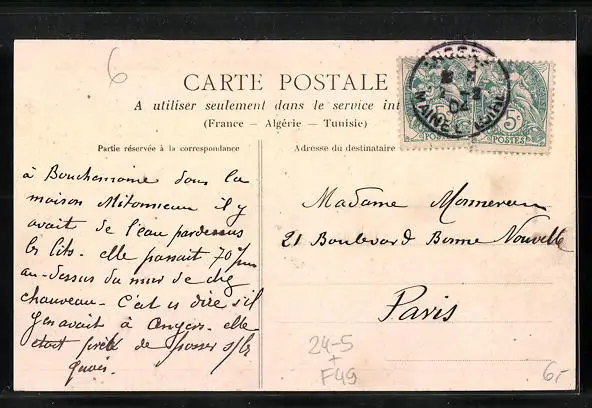 6
CARTE POSTALE
A utiliser seulement dans le service int
(France — Algérie — Tunisie)
Partie réservée à la correspondance
Adresse du destinataire
ANGERS
04
MAINE
5c
POSTES
5c
POSTES
à Bouchemaine dans la
maison Mitonneau il y
avait de l'eau pardessus
les lits. elle passait 70
au-dessus du mur de chez
chauveau. C'est a dire s'il
y en avait à Angers. elle
était prête de passer s/les
quais.
Madame
21 Boulevard Bonne Nouvelle
Paris
24-5
+
F49
6,-